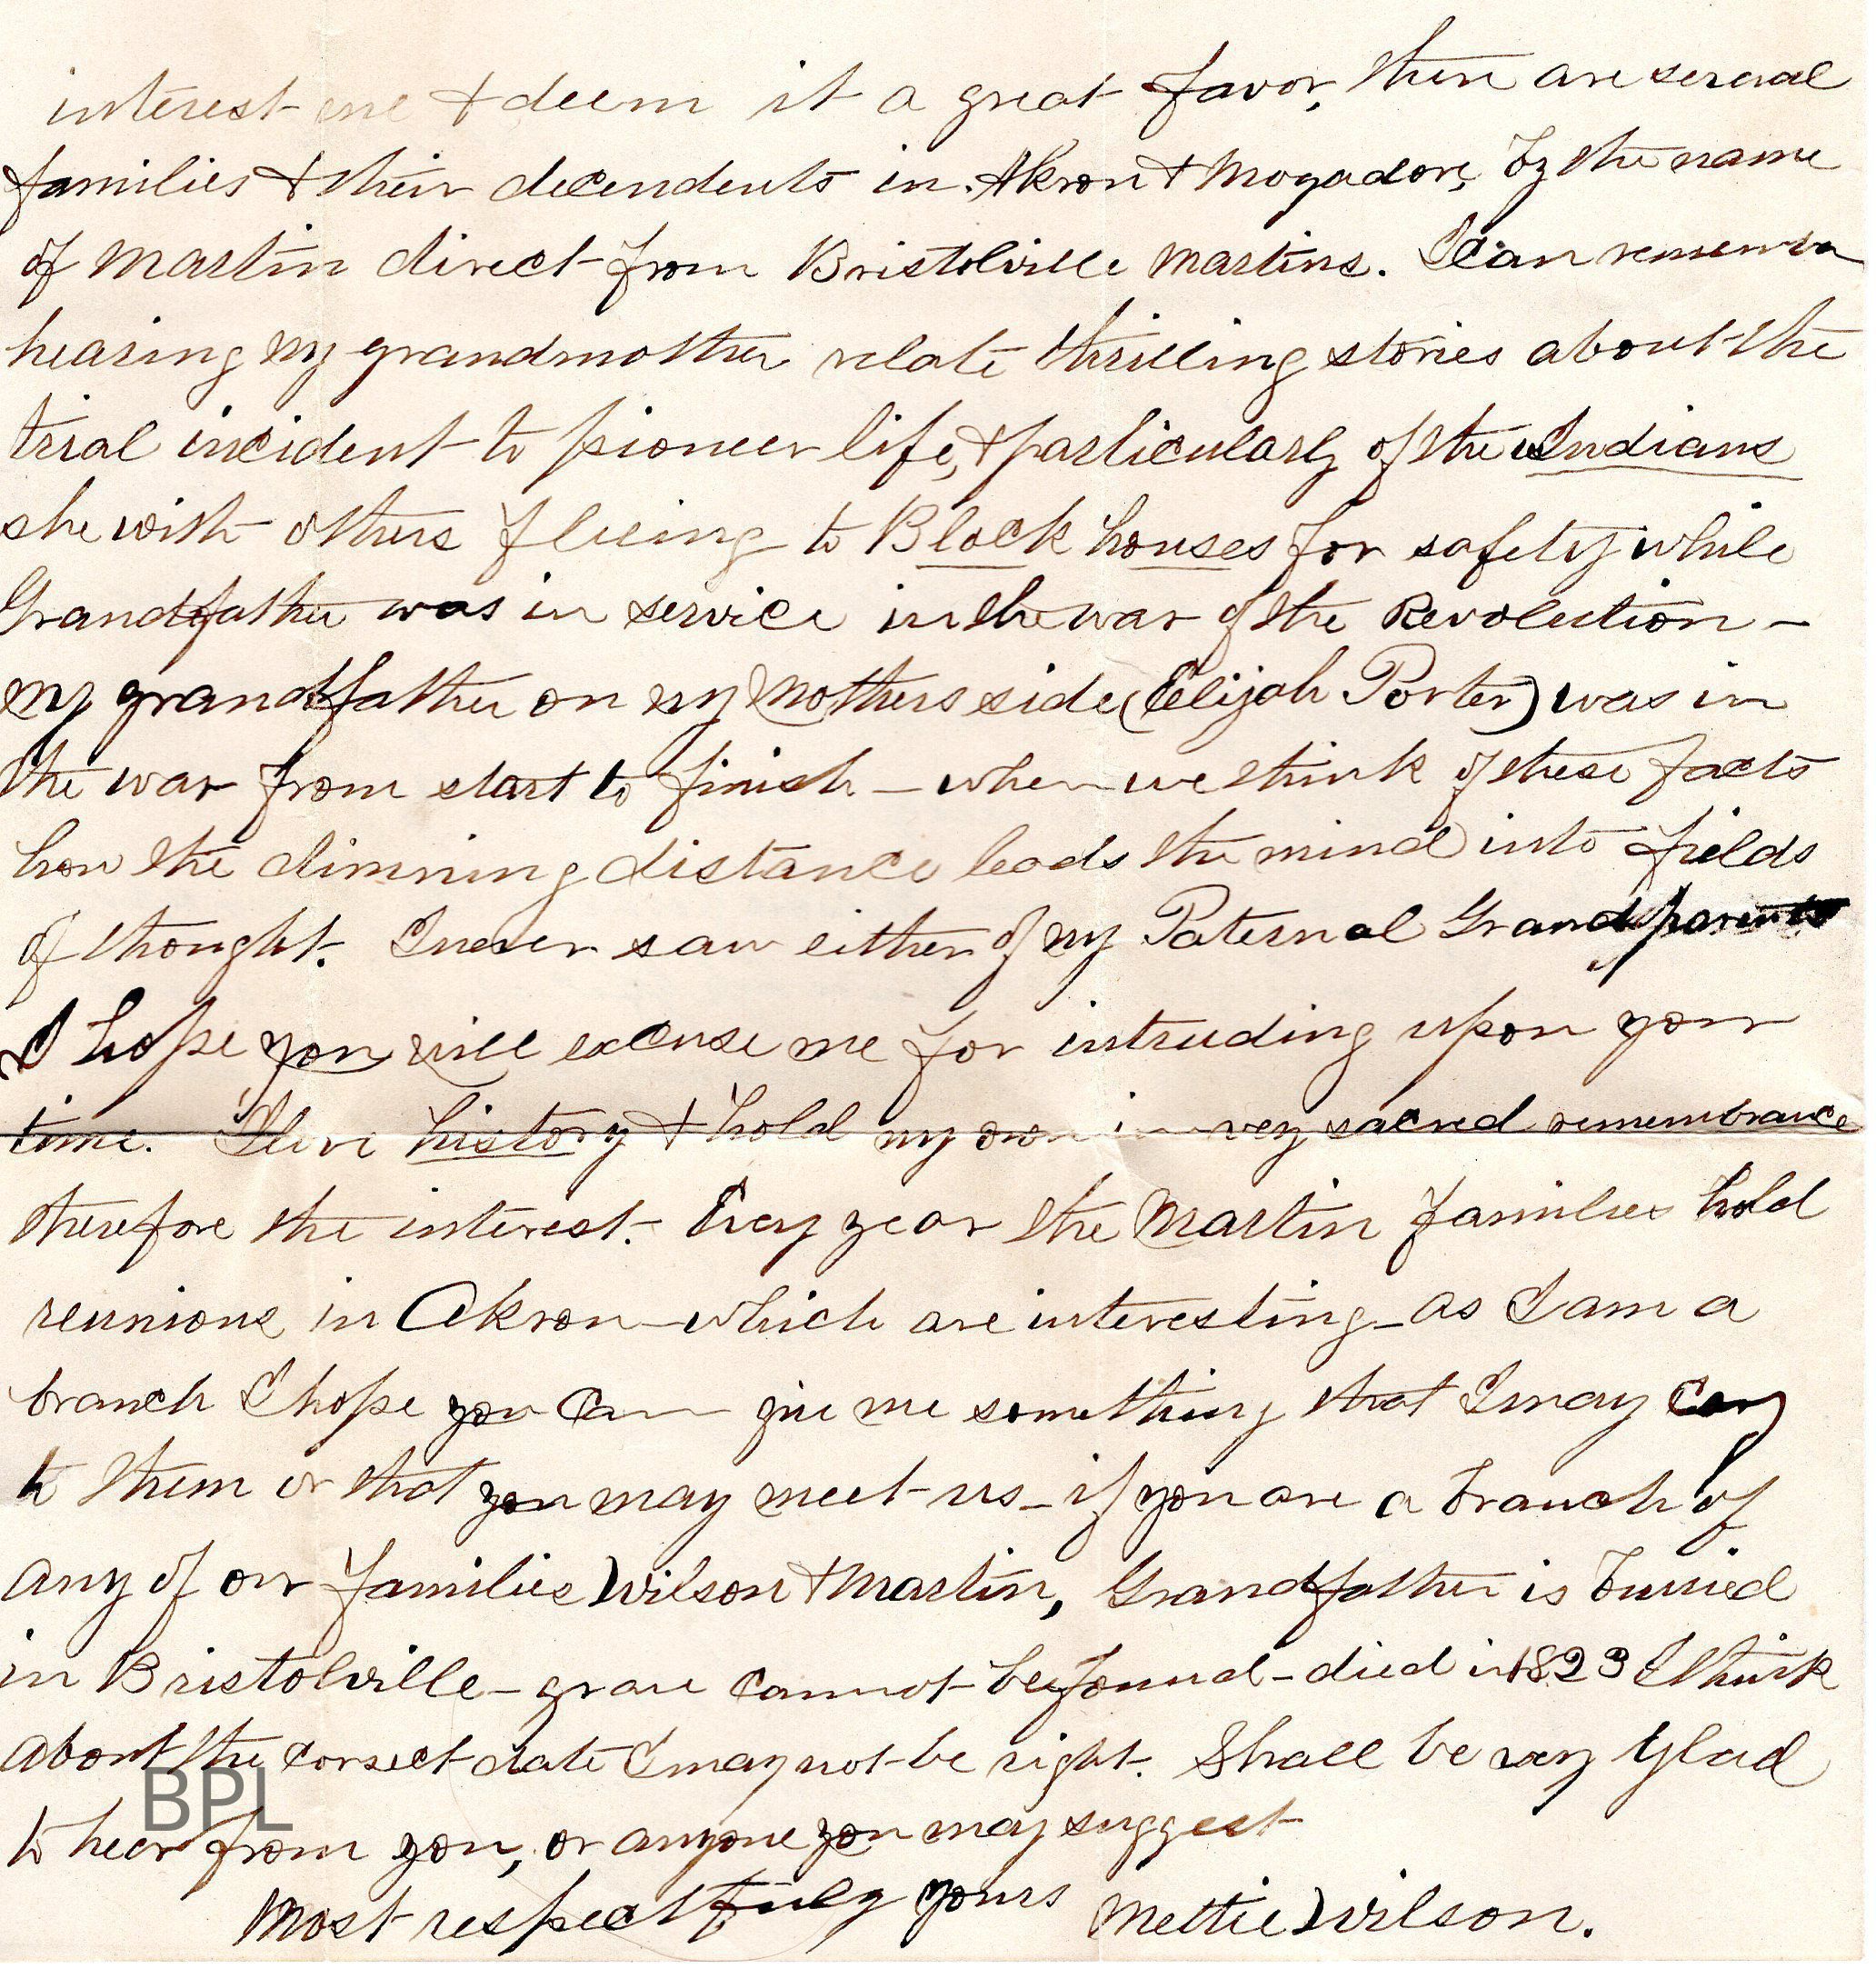 interest me & deem it a great favor, there are several
families & their decendents in Akron & Mogadore, by the name
of Martin direct from Bristolville Martins. I can remember
hearing my grandmother relate thrilling stories about the
trial incident to pioneer life, & particularly of the Indians
she with others fleeing to Block houses for safety while
Grandfather was in service in the war of the Revolution –
my grandfather on my Mothers side (Elijah Porter) was in
the war from start to finish – when we think of these facts
how the dimning distance leads the mind into fields
of thought. I never saw either of my Paternal Grandparents
I hope you will excuse me for intruding upon your
time. I love history & hold my own in very sacred remembrance
therefore the interest. Every year the Martin families hold
reunions in Akron – which are interesting – as I am a
branch I hope you can give me something that I may cary
to them or that you may meet us – if you are a branch of
any of our families Wilson & Martin, Grandfather is buried
in Bristolville – grave cannot be found – died in 1823 I think
about the correct date I may not be right. Shall be very glad
BPL
to hear from you, or anyone you may suggest
Most respectfuly yours Mettie Wilson.